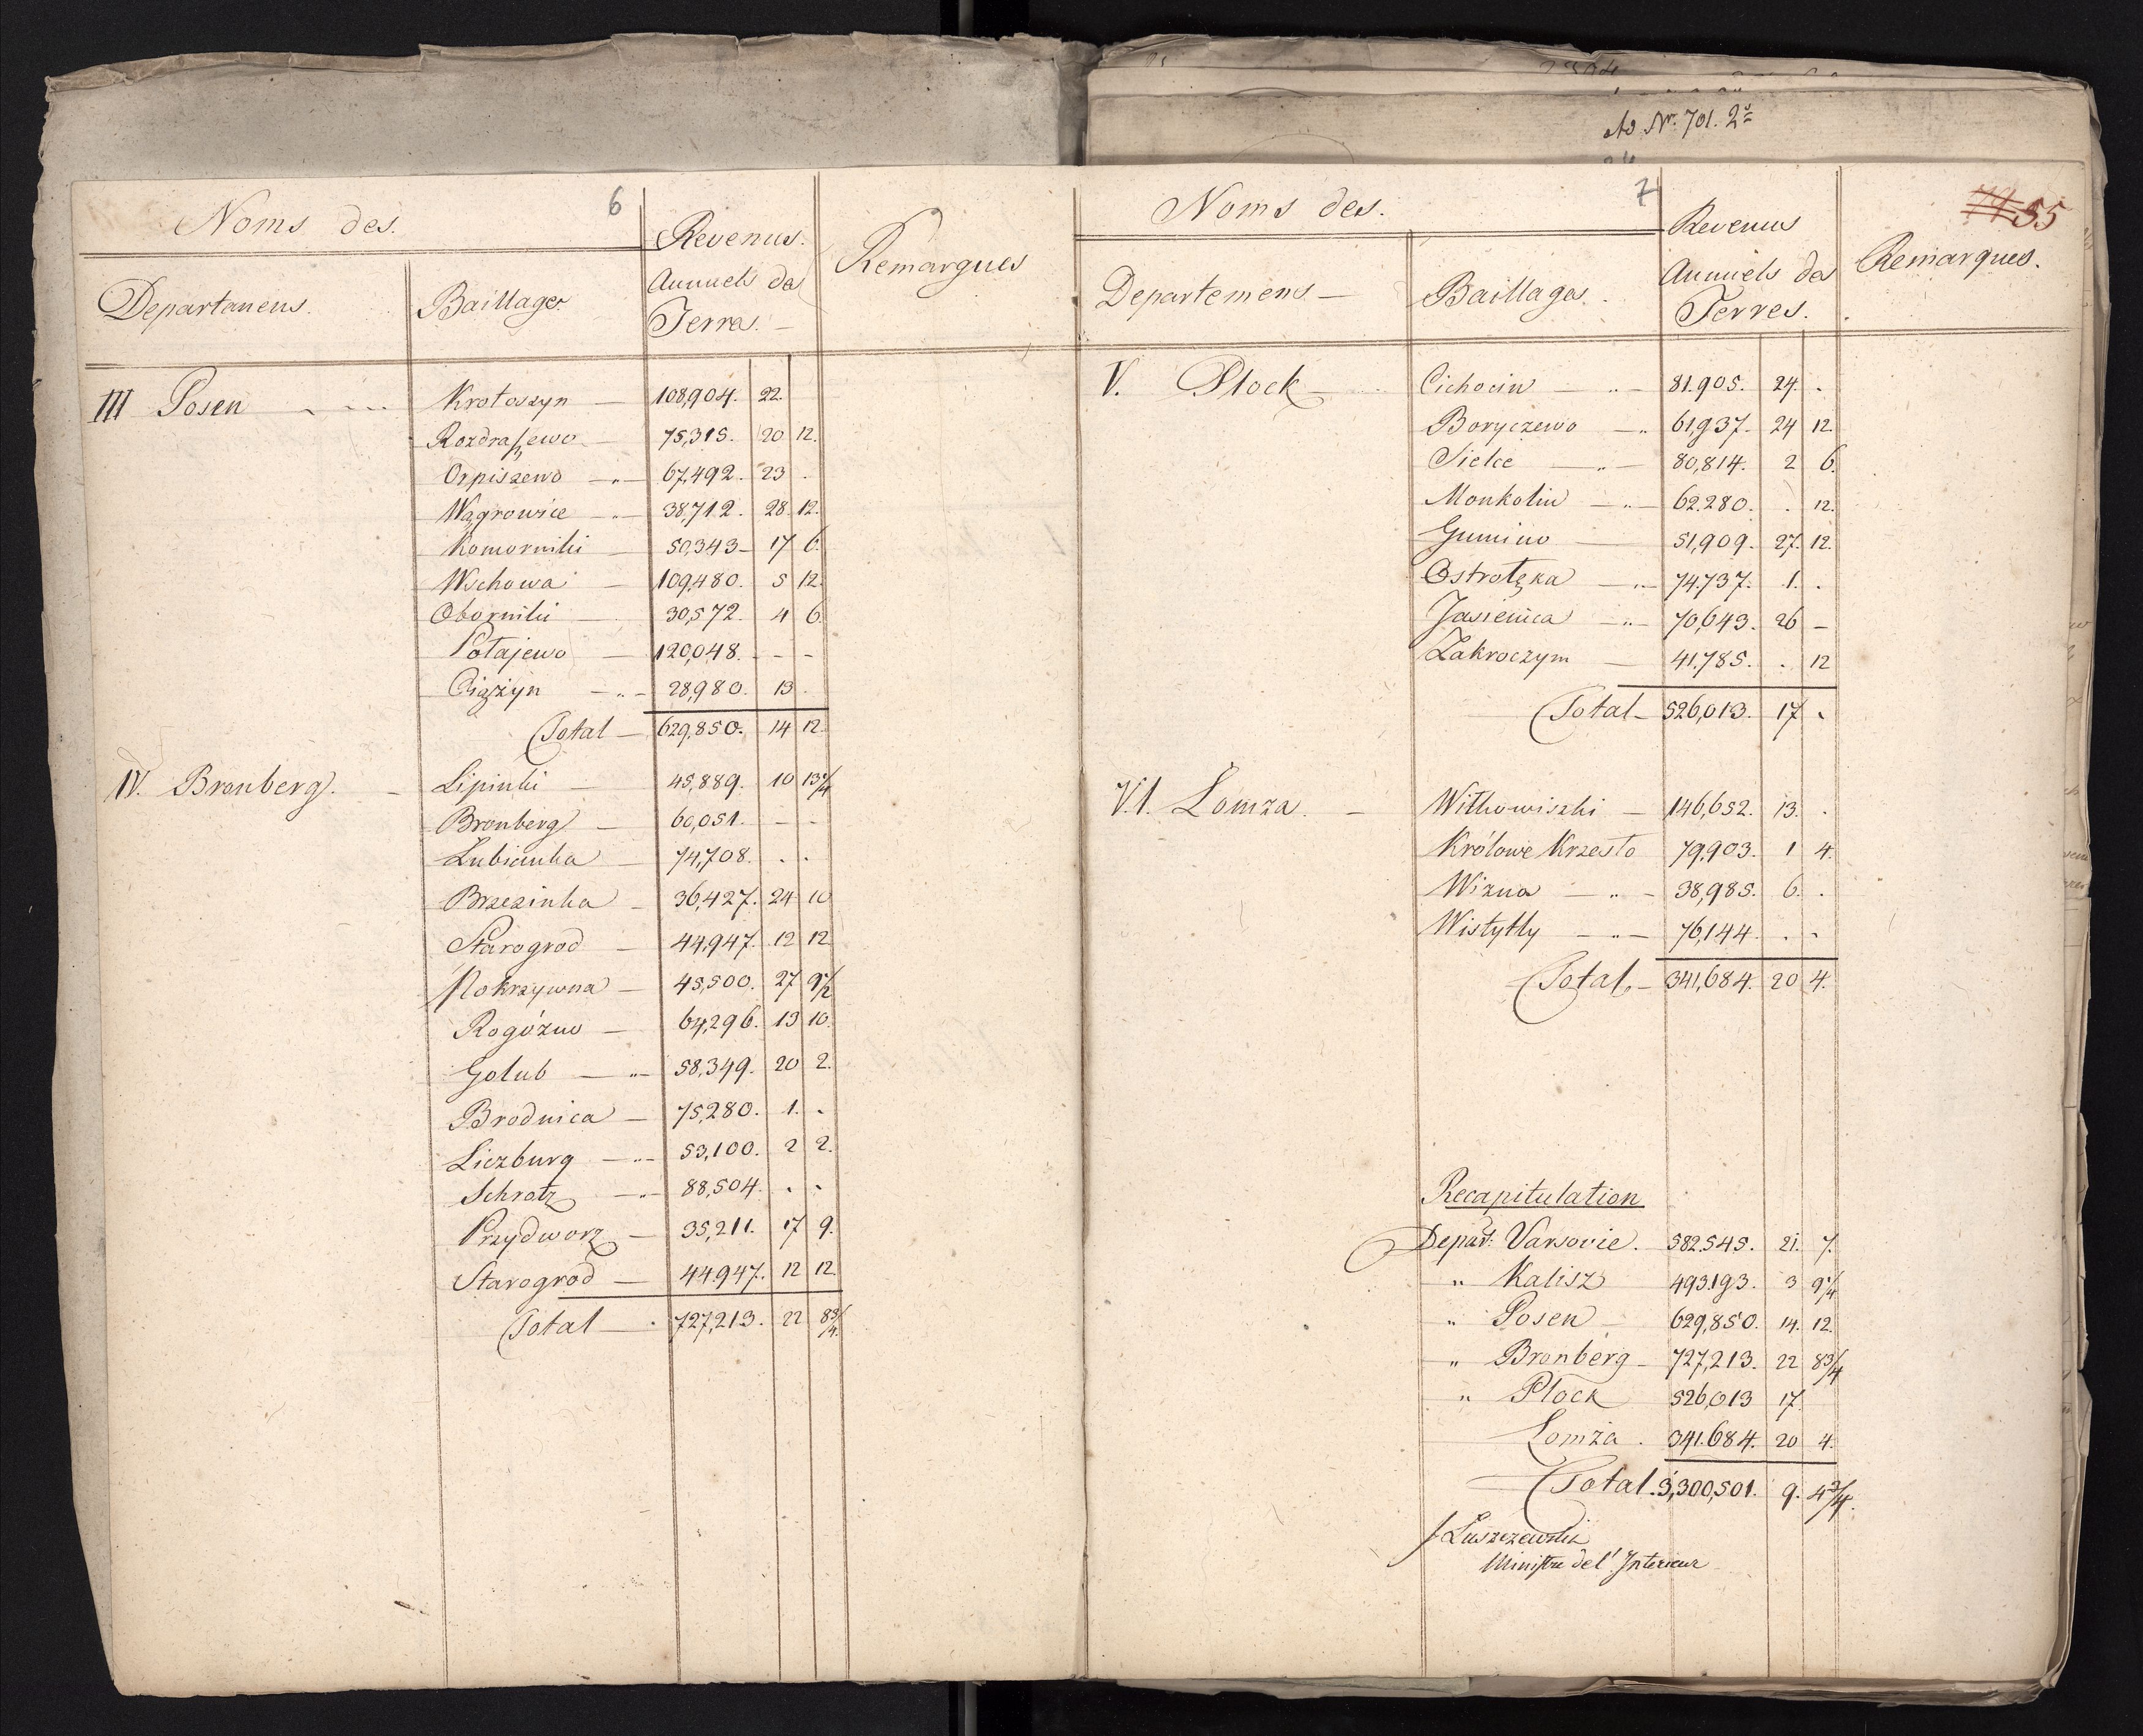 Ad Nr. 701. 2
6
Noms des.
Revenus.
Annuels des
Terres.
Remarques
Departemens.
Baillages
III Posen
Krotoszyn — 108,904. 22.
Rozdraszewo — 75,315. 20 12.
Orpiszewo — 67,492. 23 .
Wągrowice — 38,712. 28. 12.
Komorniki — 50,343 — 17 6.
Wschowa — 109,480. 5 12.
Oborniki — 30,572. 4 6.
Połajewo — 120,048. - - -
Ciążyn — 28,980. 13 .
Total — 629,850. 14 12.
IV. Bromberg.
Lipinki — 45,889. 10 13 1/4
Bromberg — 60,051. - -
Lubianka — 74,708. . .
Brzezinka — 36,427. 24 10
Starogrod — 44,947. 12 12
Pokrzywna — 45,500. 27 9 1/2
Rogóźno — 64,296. 13 10.
Golub — 58,349. 20 2.
Brodnica — 75,280. 1. .
Liczburg — 53,100. 2 2.
Schrotz — 88,504. . .
Przydworz — 35,211. 17 9.
Starogrod — 44,947. 12 12.
Total — 727,213. 22 8 3/4.
7
55
Noms des.
Revenus
Annuels des
Terres.
Remarques.
Departemens —
Baillages.
V. Plock —
Cichocin — 81,905. 24. .
Boryczewo — 61,937. 24 12.
Sielce — 80,814. 2 6.
Monkolin — 62,280. . 12.
Gumino — 51,909. 27. 12.
Ostrołęka — 74,737. 1. .
Jasienica — 70,643. 26 —
Zakroczym — 41,785. . 12
Total — 526,013. 17 .
VI. Lomza. —
Witkowiszki — 146,652. 13. .
Królowe Krzesło 79,903. 1 4.
Wizna — 38,985. 6. .
Wistytty — 76,144. . .
Total — 341,684. 20 4.
Recapitulation
Depart: Varsovie. 582,545. 21. 7.
" Kalisz 493,193. 3 9 1/4
" Posen 629,850. 14. 12.
" Bromberg — 727,213. 22 8 3/4
" Plock 526,013 17.
Łomża . 341,684. 20 4.
Total. 3,300,501. 9. 4 3/4.
J Łuszczewski
Ministre de l'Interieur